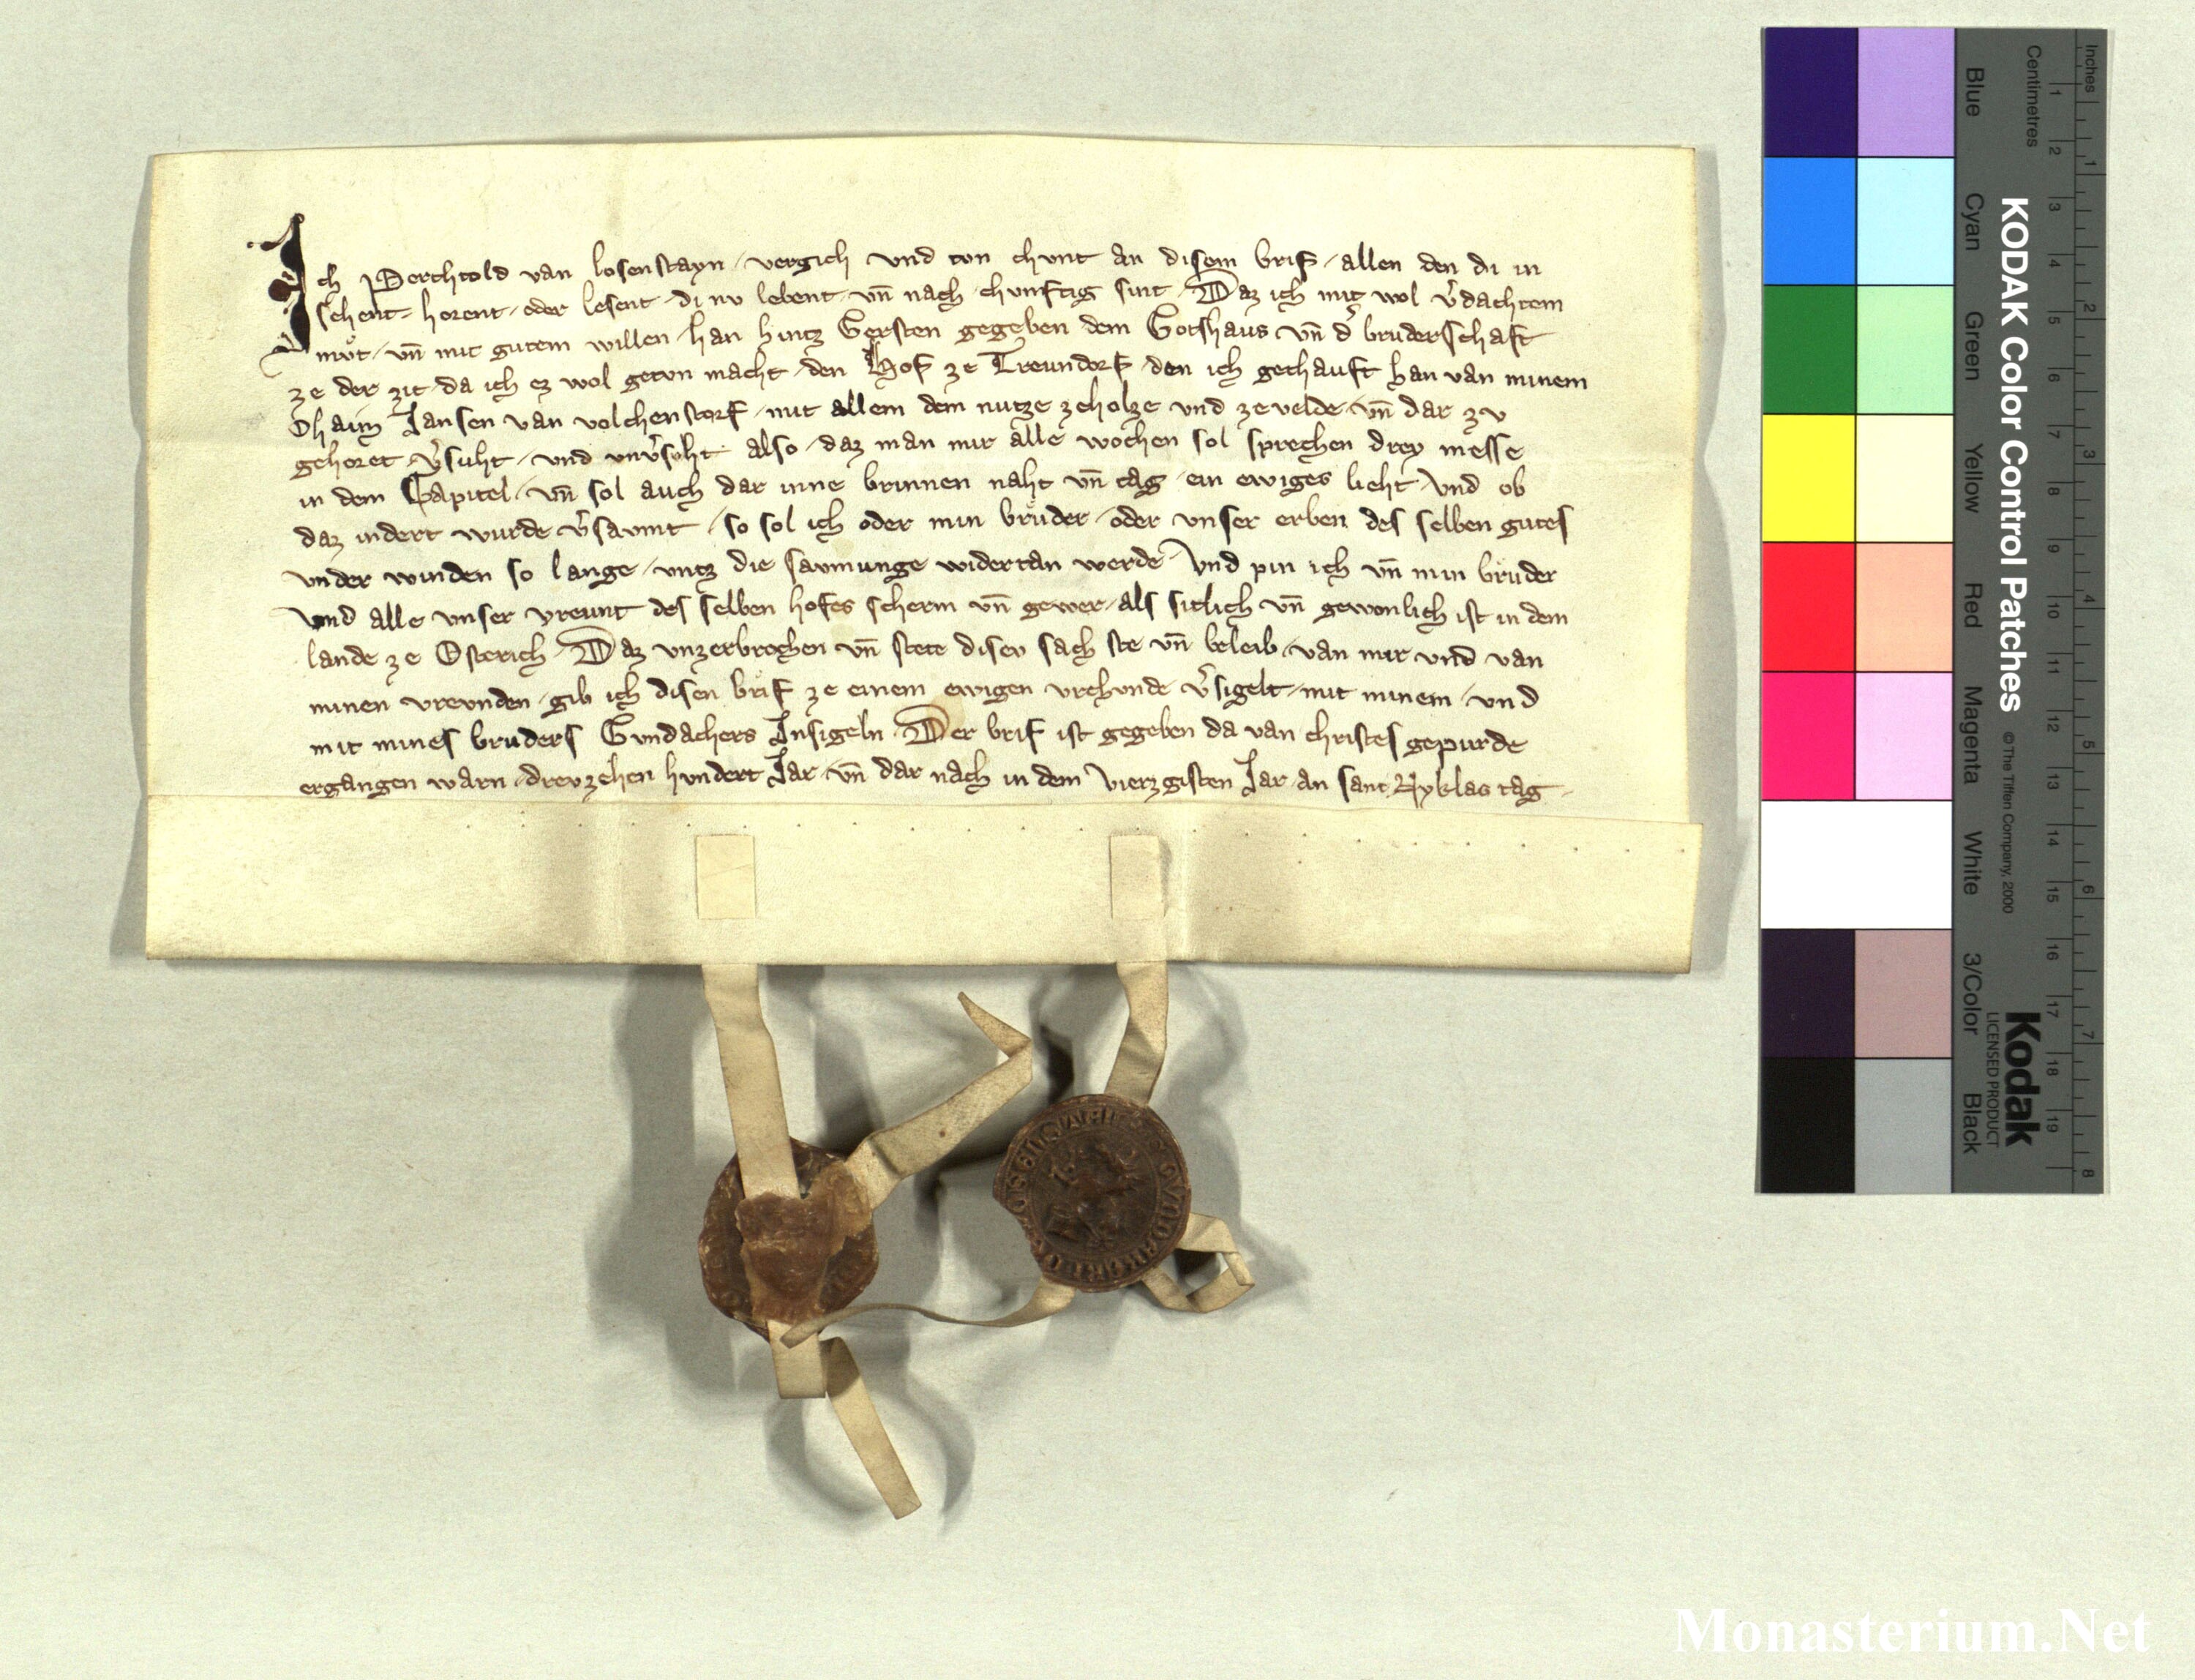 Ich Perchtold van losenstayn vergich und tvn chvnt an disem brif allen den di in
sehent horent oder lesent di nv lebent vn̄ nach chvnftig sint Daz ich mit wol v̓dachtem
mvͦt vn̄ mit gutem willen han hintz Gersten gegeben dem Gotshaus vn̄ d̓ bruderschaft
ze der zit da ich ez wol getvn macht den Hof ze Treundorf den ich gechauft han van minem
Ohaim Jansen van volchenstorf mit allem dem nutze ze holze und ze velde vn̄ dar zv
gehoret v̓suht und vnv̓suht also daz man mir alle wochen sol sprechen drey messe
in dem Capitel vn̄ sol auch dar inne brinnen naht vn̄ tag ein ewiges lieht Vnd ob
daz indert wurde v̓saumt so sol ich oder min bruͤder oder vnser erben des selben gutes
vnder winden so lange vntz die saumunge widertan werde Vnd pin ich vn̄ min bruͤder
Vnd alle vnser vreunt des selben hofes scherm vn̄ gewer als sitlich vn̄ gewonlich ist in dem
lande ze Osterich Daz vnzerbrochen vn̄ stete disev sach ste vn̄ beleib van mir vnd van
minen vrevnden gib ich disen brif ze einem ewigen vrchvnde v̓sigelt mit minem und
mit mines bruders Gvndachers Insigeln Der brif ist gegeben da van christes gepurde
ergangen warn drevzehen hvndert Jar vn̄ dar nach in dem Vierzgisten Jar an sant Nyklas tag
KODAK Color Control Patches
© The Tiffen Company, 2000
Kodak
LICENSED PRODUCT
Blue
Cyan
Green
Yellow
Red
Magenta
White
3/Color
Black
Inches
1 2 3 4 5 6 7 8
Centimetres
1 2 3 4 5 6 7 8 9 10 11 12 13 14 15 16 17 18 19
Monasterium.Net